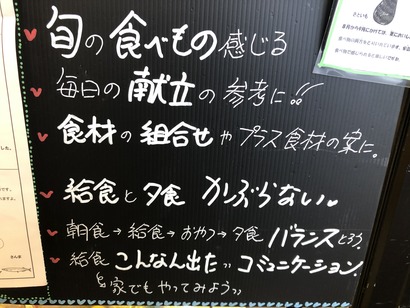 旬の食べもの感じる
毎日の献立の参考に!!
食材の組合せやプラス食材の案に。
給食と夕食 かぶらない
朝食→給食→おやつ→夕食 バランスとろう。
給食 こんなん出た〃 コミュニケーション。
&家でもやってみよう〃
さといも